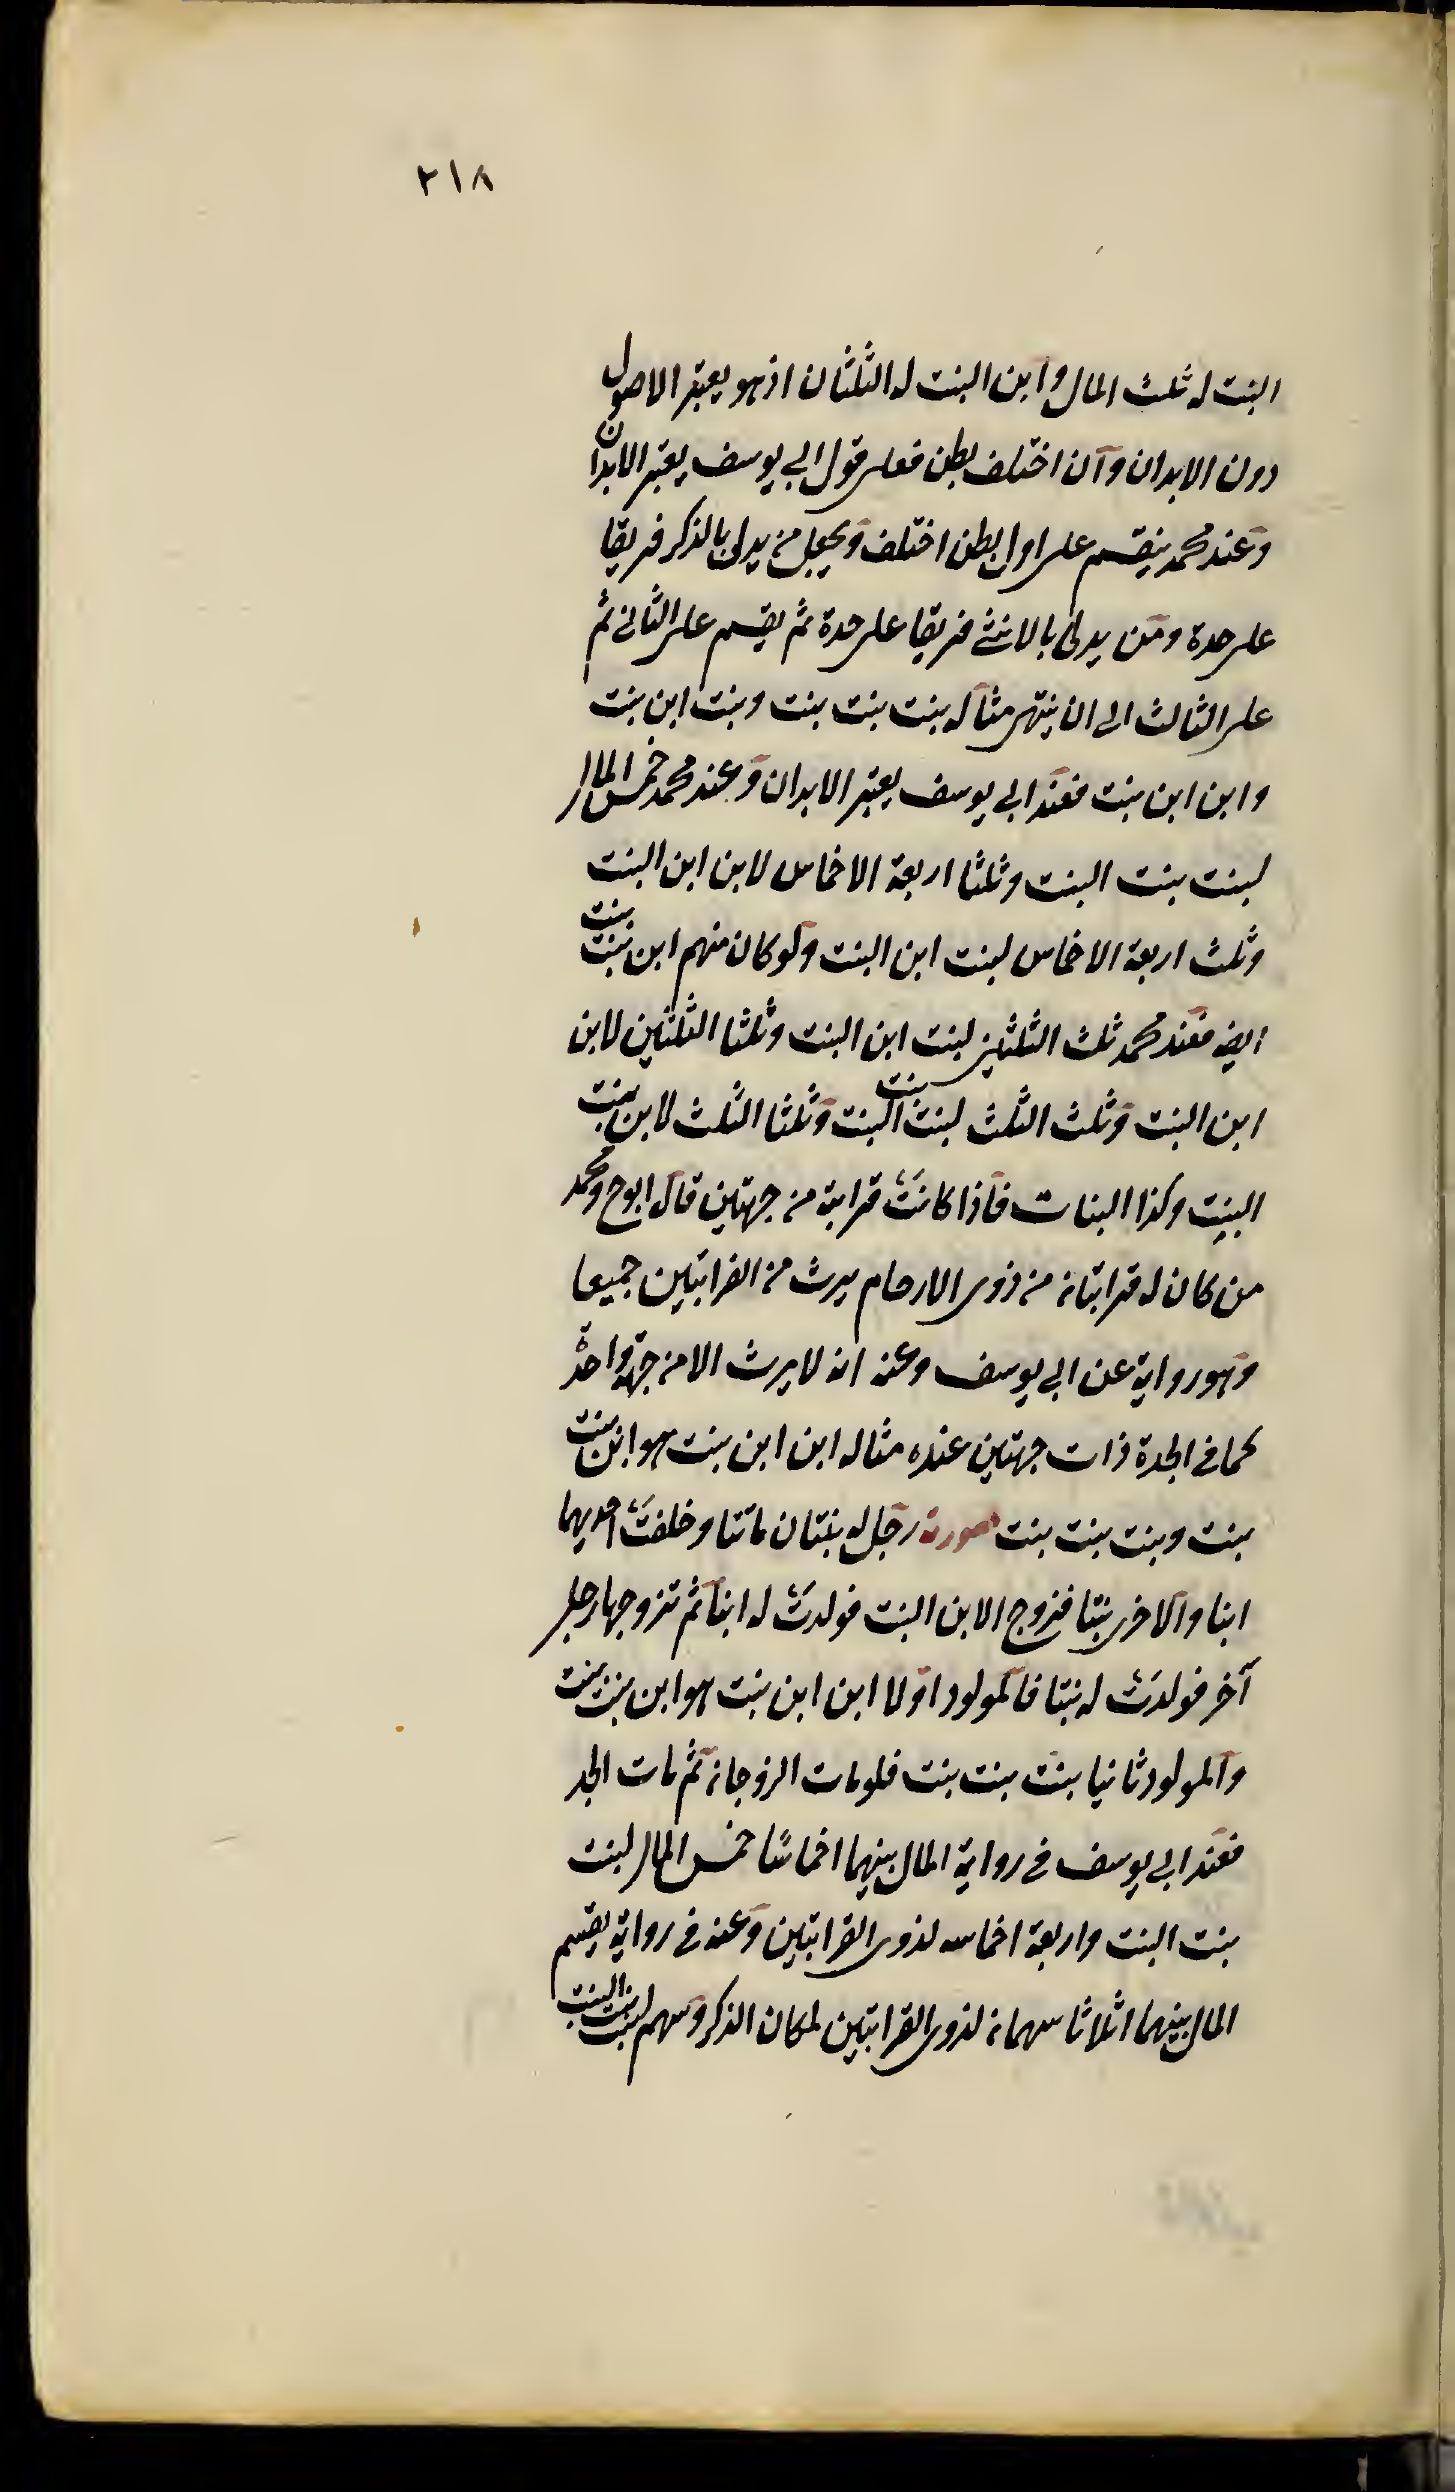 ٢١٨
البنت له ثلث المال وابن البنت له الثلثان اذ هو يعتبر الاصول
دون الابدان وان اختلف بطن فعلى قول ابي يوسف يعتبر الابدان
وعند محمد ينقسم على اول بطن اختلف ويجعل من يدلى بالذكر فريقا
على حدة ومن يدلى بالانثى فريقا على حدة ثم يقسم على الثانى ثم
على الثالث الى ان ينتهى مثاله بنت بنت بنت وبنت ابن بنت
وابن ابن بنت فعند ابي يوسف يعتبر الابدان وعند محمد خمس المال
لبنت بنت البنت وثلثا اربعة الاخماس لابن ابن البنت
وثلث اربعة الاخماس لبنت ابن البنت ولو كان منهم ابن بنت بنت
ايضا فعند محمد ثلث الثلثين لبنت ابن البنت وثلثا الثلثين لابن
ابن البنت وثلث الثلث لبنت بنت البنت وثلثا الثلث لابن بنت
البنت وكذا البنات فاذا كانت قرابة من جهتين قال ابو ح ومحمد
من كان له قرابتان من ذوى الارحام يرث من القرابتين جميعا
وهو رواية عن ابي يوسف وعنه انه لا يرث الا من جهة واحدة
كما في الجدة ذات جهتين عنده مثاله ابن ابن بنت هو ابن بنت
بنت وبنت بنت بنت صورته رجل له بنتان ماتتا وخلفت احديهما
ابنا والاخرى بنتا فتزوج الابن البنت فولدت له ابنا ثم تزوجها رجل
آخر فولدت له بنتا فالمولود اولا ابن ابن بنت هو ابن بنت بنت
والمولود ثانيا بنت بنت بنت فلو مات الزوجان ثم مات الجد
فعند ابي يوسف في رواية المال بينهما اخماسا خمس المال لبنت
بنت البنت واربعة اخماسه لذوى القرابتين وعنه في رواية يقسم
المال بينهما اثلاثا سهمان لذوى القرابتين لمكان الذكر وسهم لبنت بنت البنت